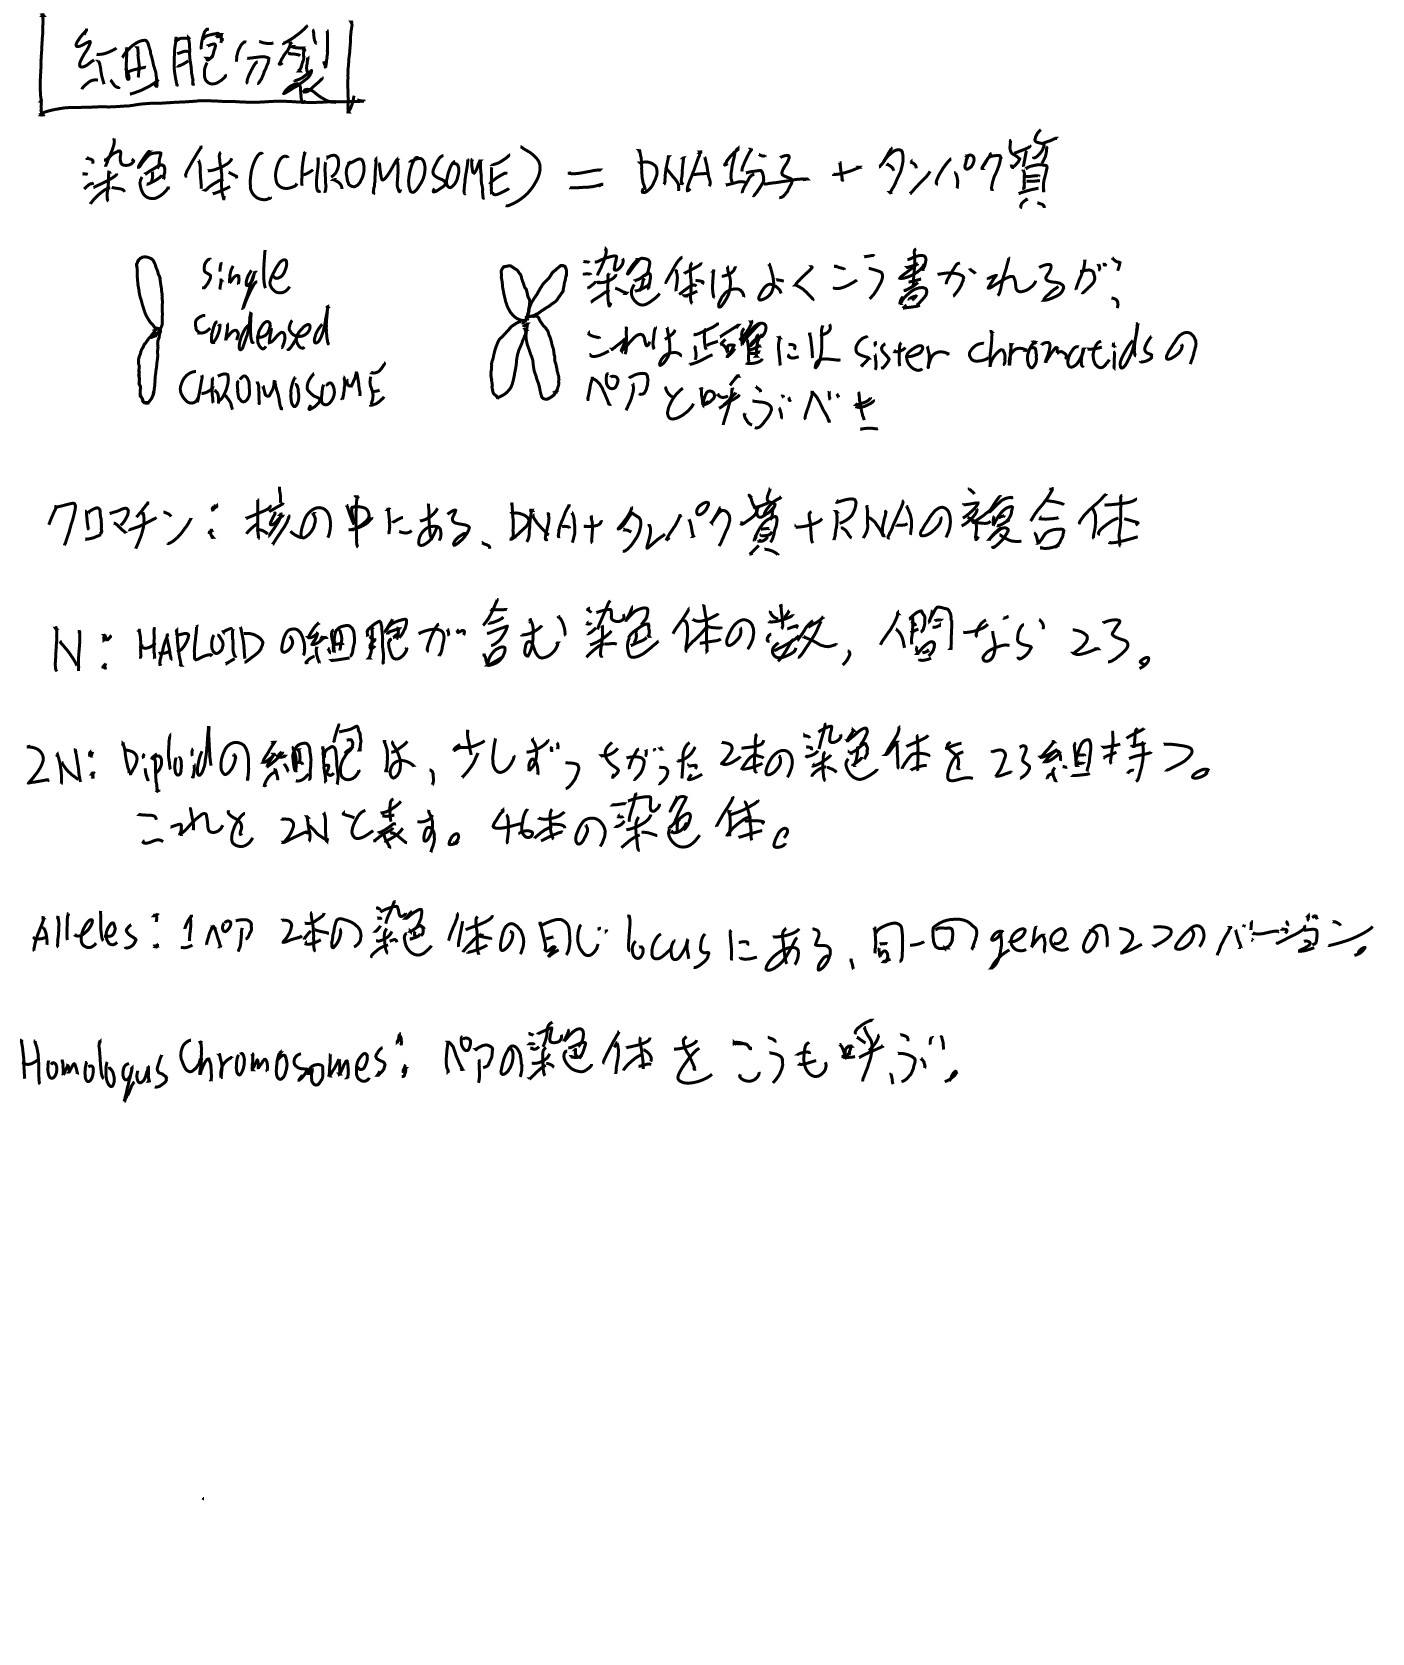 細胞分裂
染色体(CHROMOSOME) = DNA 1分子 + タンパク質
single
condensed
CHROMOSOME
染色体はよくこう書かれるが、
これは正確には sister chromatidsの
ペアと呼ぶべき
クロマチン：核の中にある、DNA+タンパク質+RNAの複合体
N：HAPLOIDの細胞が含む染色体の数, 人間なら23。
2N：Diploidの細胞は、少しずつちがった2本の染色体を23組持つ。
これを2Nと表す。46本の染色体。
Alleles：1ペア2本の染色体の同じlocusにある、同一のgeneの2つのバージョン.
Homologus Chromosomes：ペアの染色体をこうも呼ぶ.